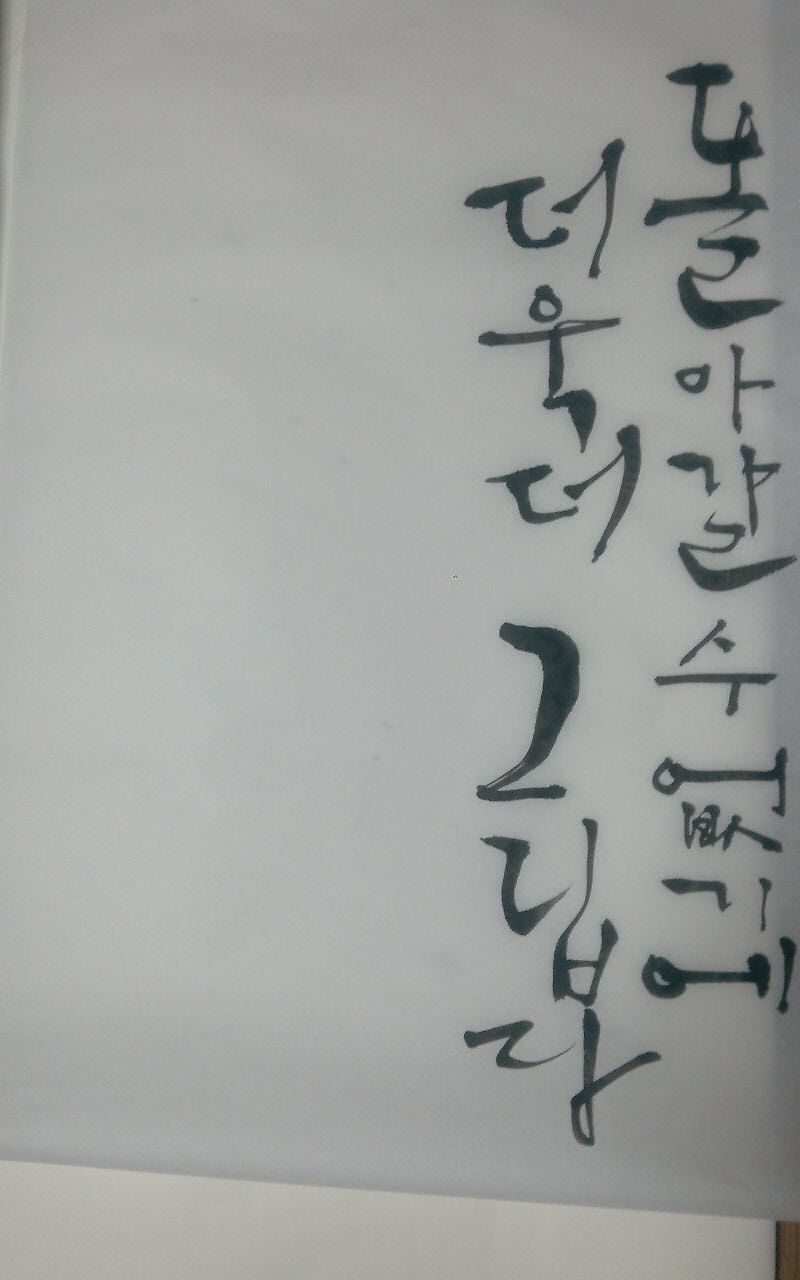 돌아갈 수 없기에
더욱 더 그립다